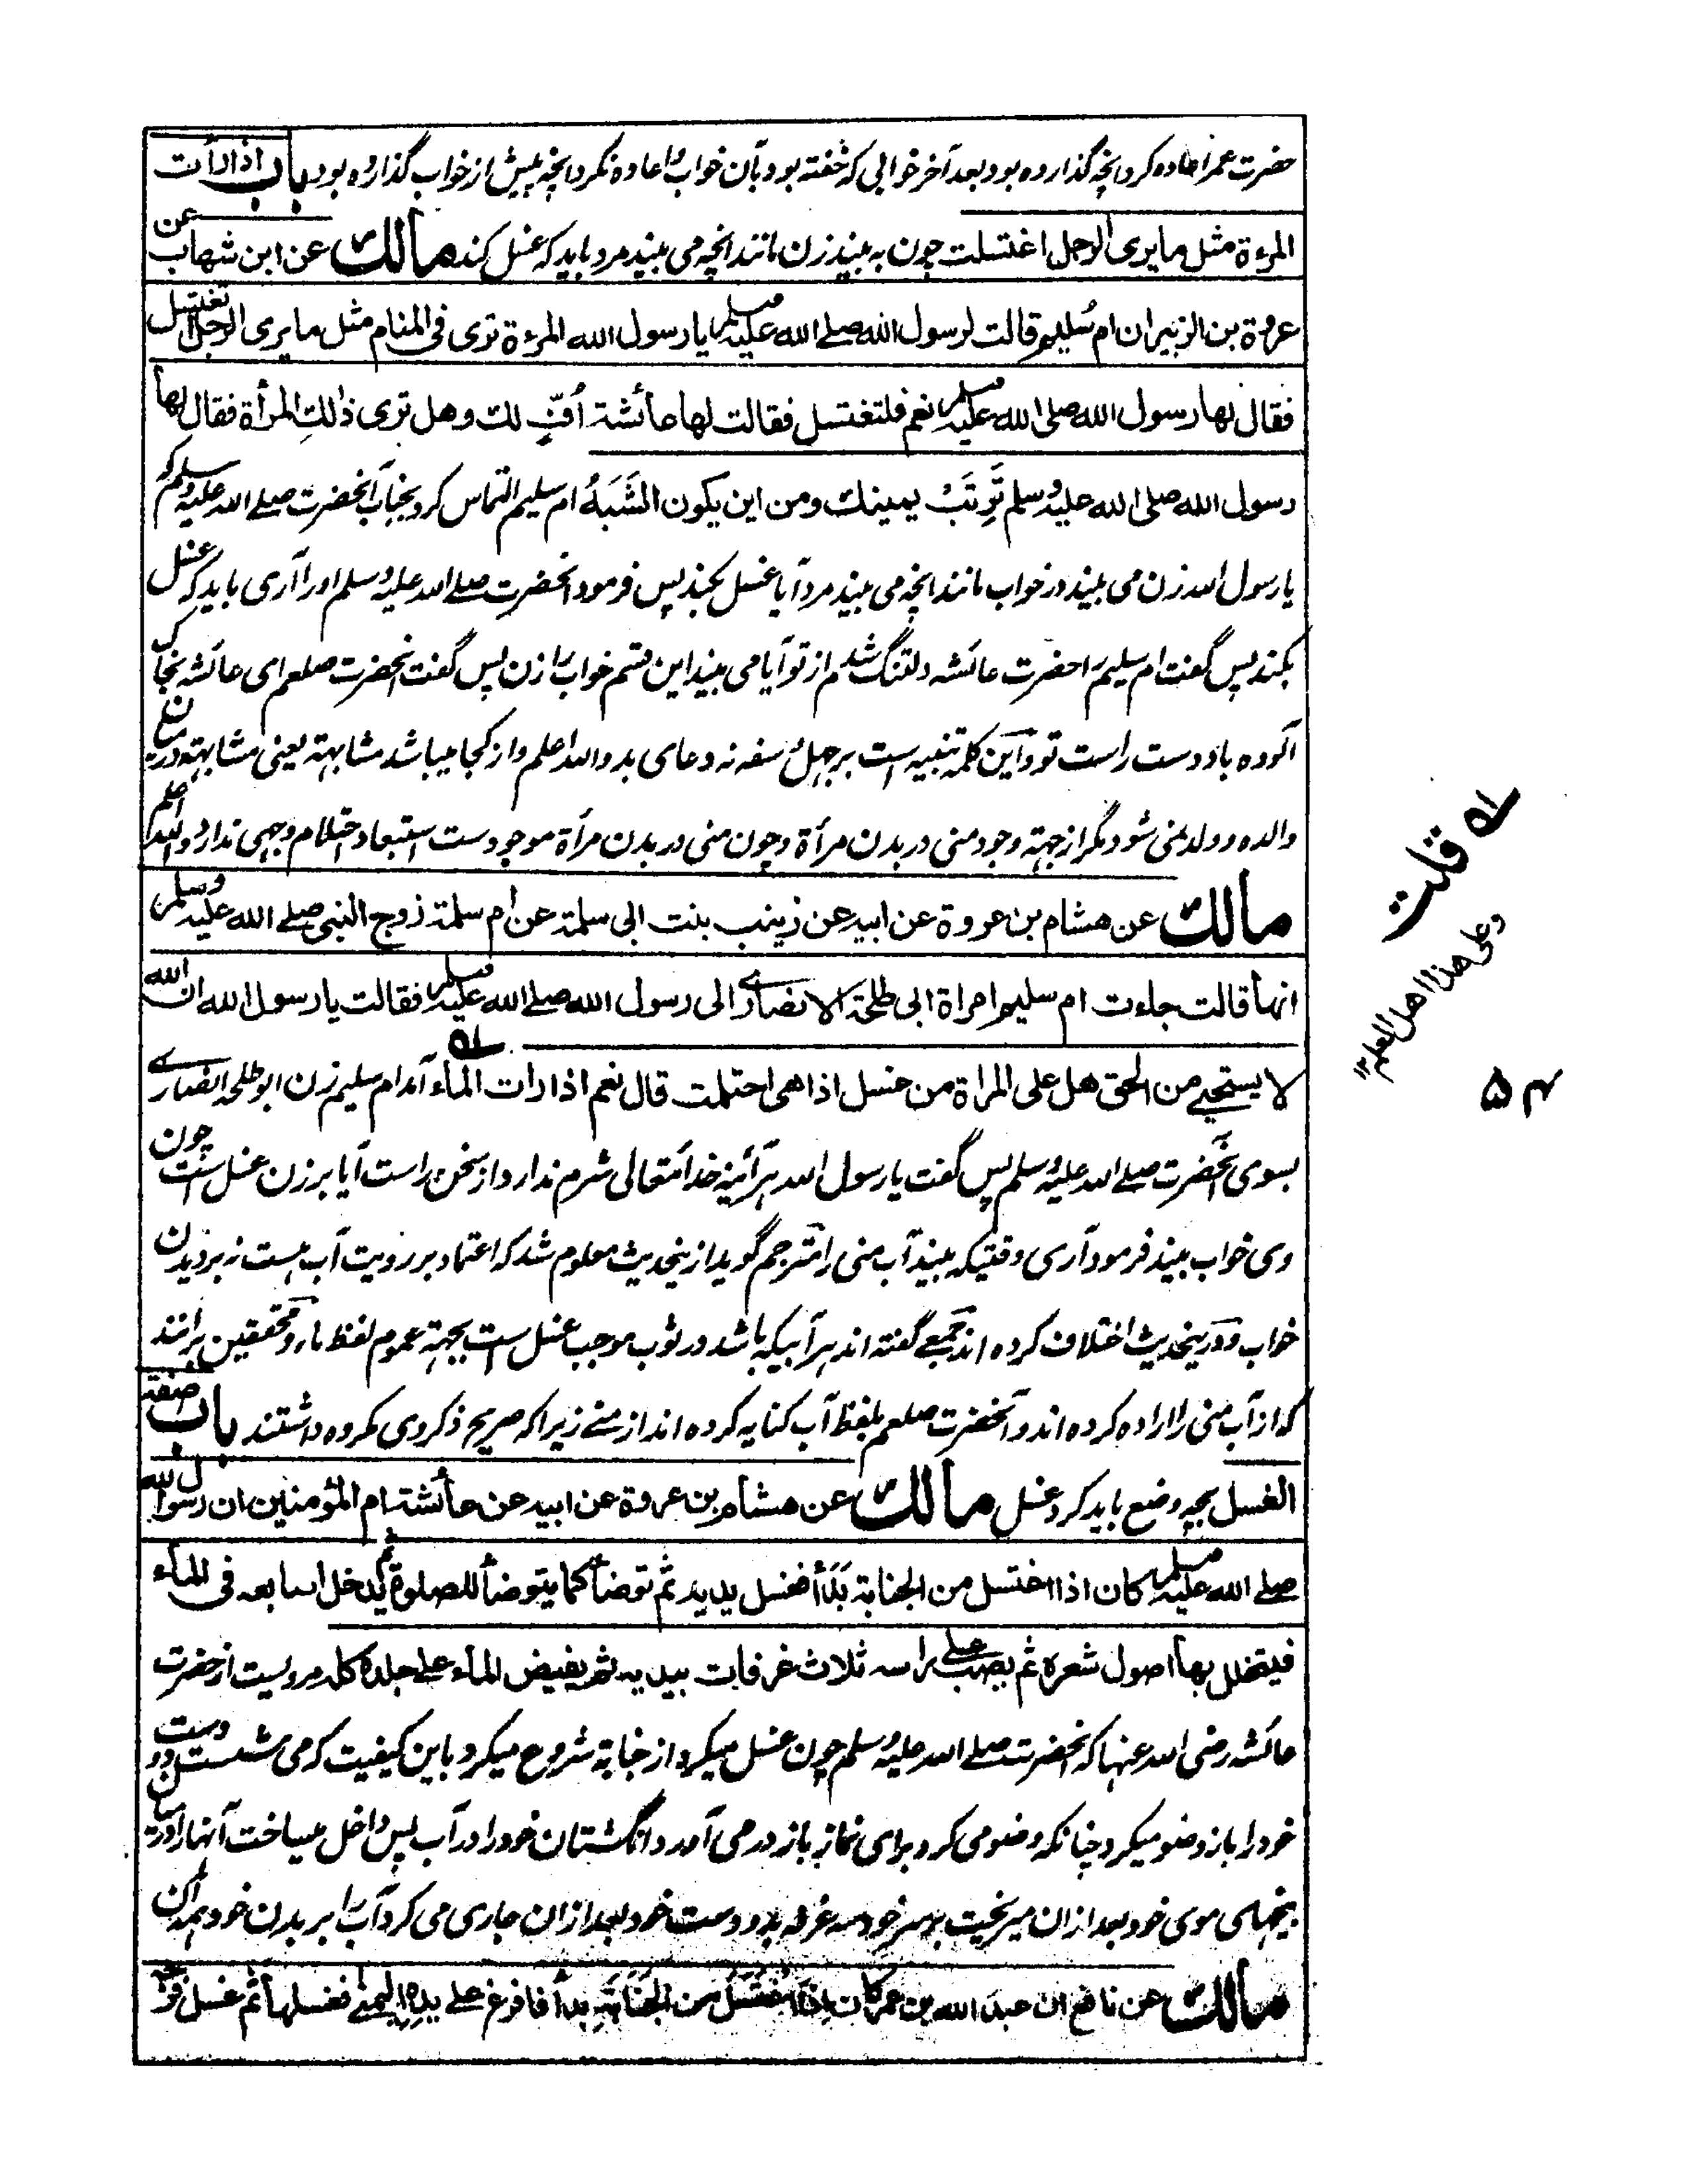 حضرت عمر اعاده کرد آنچه گذارده بود بعد آخر خوابی که خفته بود بآن خواب و اعاده نکرد آنچه پیش از خواب گذارده بود باب اذا رأت
المرءة مثل ما یری الرجل اغتسلت چون به بیند زن مانند آنچه می بیند مرد باید که غسل کند مالك عن ابن شهاب عن
عروة بن الزبیر ان ام سُلیم قالت لرسول الله صلے الله علیه وسلم یا رسول الله المرءة تری فی المنام مثل ما یری الرجل اتغتسل
فقال لها رسول الله صلی الله علیه وسلم نعم فلتغتسل فقالت لها عائشة اُفٍّ لك وهل تری ذٰلكِ المرأة فقال لها
رسول الله صلی الله علیه وسلم تَرِبَتْ یمینك ومن این یکون الشَبَهُ ام سلیم التماس کرد بجناب آنحضرت صلے الله علیه وسلم که
یا رسول الله زن می بیند در خواب مانند آنچه می بیند مرد آیا غسل بکند پس فرمود آنحضرت صلے الله علیه وسلم او را آری باید که غسل
بکند پس گفت ام سلیم را حضرت عائشه دلتنگ شدم از تو آیا می بیند این قسم خواب را زن پس گفت آنحضرت صلعم ای عائشه بخاک
آلوده باد دست راست تو و این کلمه تنبیه است بر جهل و سفه نه دعای بد والله اعلم و از کجا میباشد مشابهة یعنی مشابهة در میان
والده و ولد نمی شود مگر از جهة وجود منی در بدن مرأة و چون منی در بدن مرأة موجود ست استبعاد احتلام وجهی ندارد والله اعلم
مالك عن هشام بن عروة عن ابیه عن زینب بنت ابی سلمة عن ام سلمة زوج النبی صلے الله علیه وسلم
انها قالت جاءت ام سلیم امراة ابی طلحة الانصاری الی رسول الله صلے الله علیه وسلم فقالت یا رسول الله ان الله
لا یستحیے من الحق هل علی المراة من غسل اذا هی احتلمت قال نعم اذا رات الماء آمد ام سلیم زن ابو طلحه انصاری
بسوی آنحضرت صلے الله علیه وسلم پس گفت یا رسول الله هر آئینه خدا تعالی شرم ندارد از سخن راست آیا بر زن غسل است چون
وی خواب بیند فرمود آری وقتیکه بیند آب منی را مترجم گوید ازینحدیث معلوم شد که اعتماد بر رویت آب هست نه بر دیدن
خواب و درینحدیث اختلاف کرده اند جمعے گفته اند هر آبیکه باشد در ثوب موجب غسل است بجهة عموم لفظ ماء و محققین برانند
که از آب منی را اراده کرده اند و آنحضرت صلعم بلفظ آب کنایه کرده اند از منے زیرا که صریح ذکر وی مکروه داشتند باب صفة
الغسل بچه وضع باید کرد غسل مالك عن هشام بن عروة عن ابیه عن عائشة ام المؤمنین ان رسول الله
صلے الله علیه وسلم کان اذا اغتسل من الجنابة بَدَأَ فغسل یدیه ثم توضأ کما یتوضأ للصلوة ثم یدخل اصابعه فی الماء
فیخلل بها اصول شعره ثم یصب علی راسه ثلاث غرفات بیدیه ثم یفیض الماء علے جلده کله مرویست از حضرت
عائشه رضی الله عنها که آنحضرت صلے الله علیه وسلم چون غسل میکرد از جنابة شروع میکرد باین کیفیت که می شست دو دست
خود را باز وضو میکرد چنانکه وضو می کرد برای نماز باز در می آورد انگشتان خود را در آب پس داخل میساخت آنها را در میان
بیخهای موی خود بعد ازان میریخت بر سر خود سه غرفه بدو دست خود بعد ازان جاری می کرد آب را بر بدن خود همه آن
مالك عن نافع ان عبد الله بن عمر کان اذا اغتسل من الجنابة بدأ فافرغ علے یده الیمنے فغسلها ثم غسل فرجه
له قلت
وعلی هذا اهل العلم ۱۲
۵۴